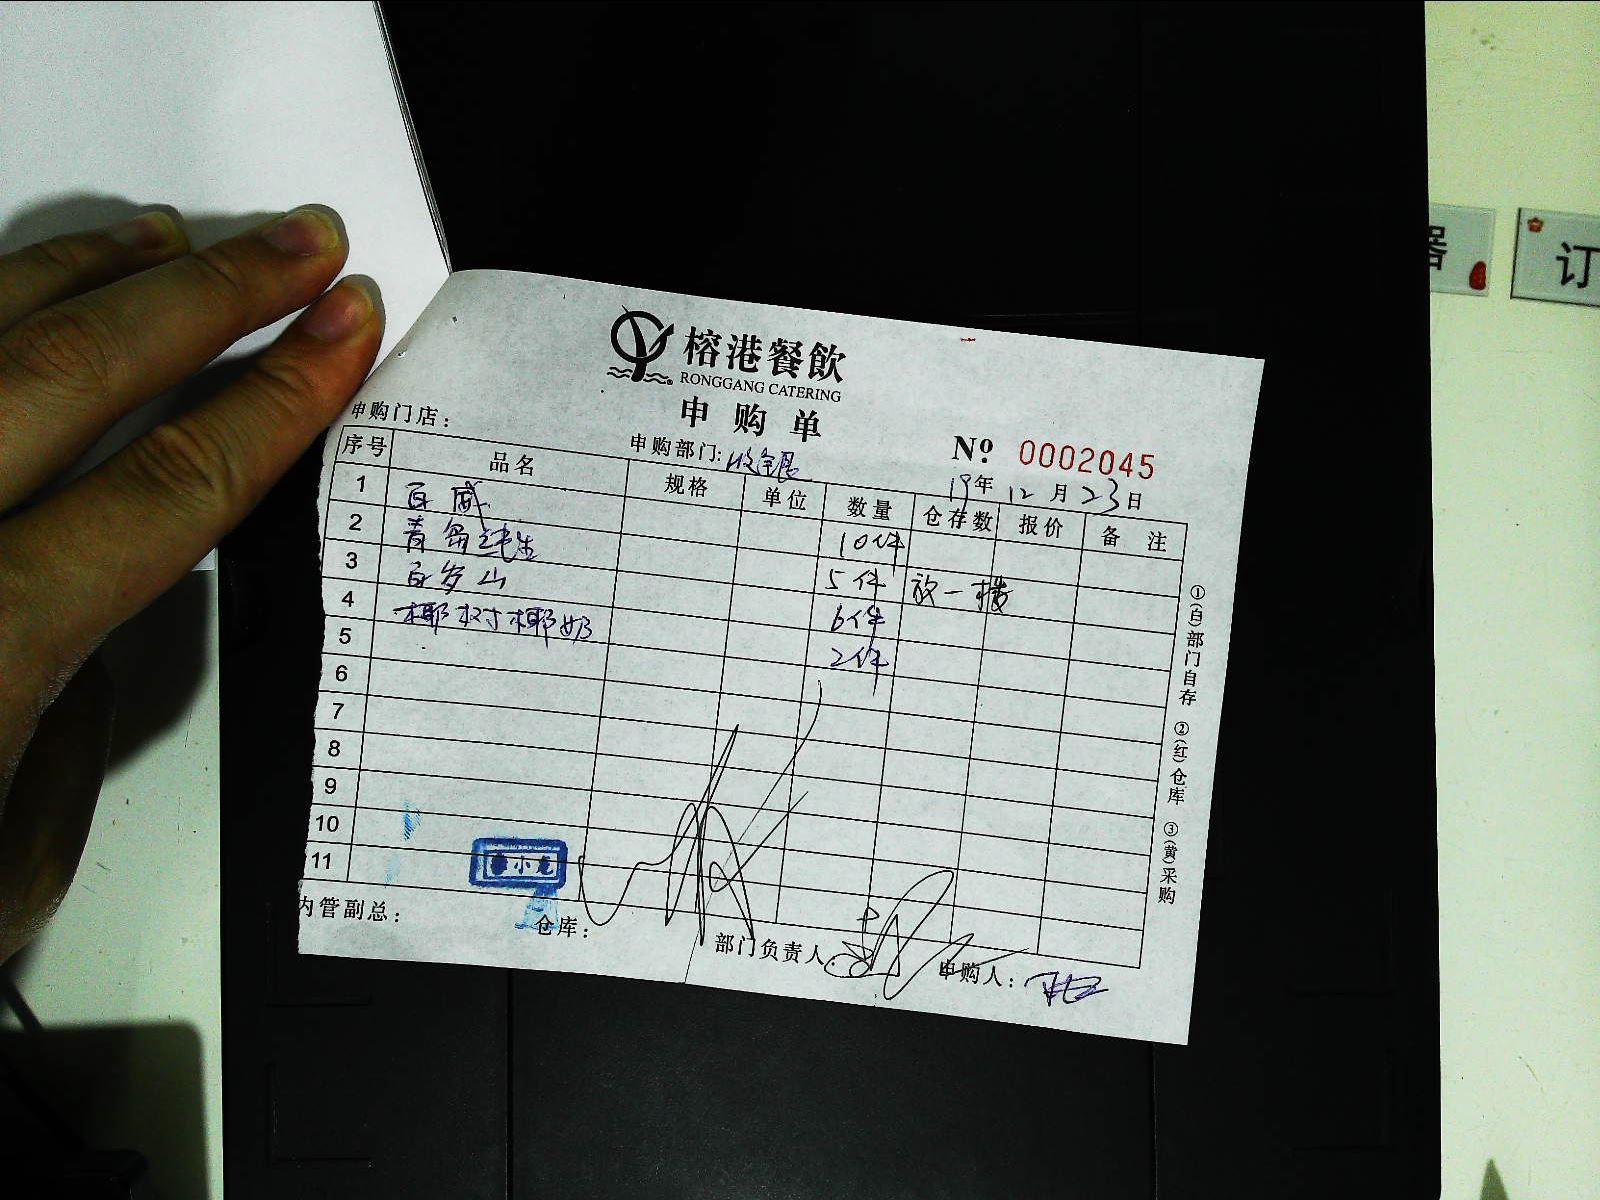 榕港餐飲
RONGGANG CATERING
申购单
申购门店：
申购部门：收银
№ 0002045
19年12月23日
序号 品名 规格 单位 数量 仓存数 报价 备注
1 百威 10件
2 青岛纯生 5件 放一楼
3 百岁山 6件
4 椰树椰奶 2件
5
6
7
8
9
10
11
小龙
内管副总：
仓库：
部门负责人：
申购人：
①(白)部门自存 ②(红)仓库 ③(黄)采购
器
订